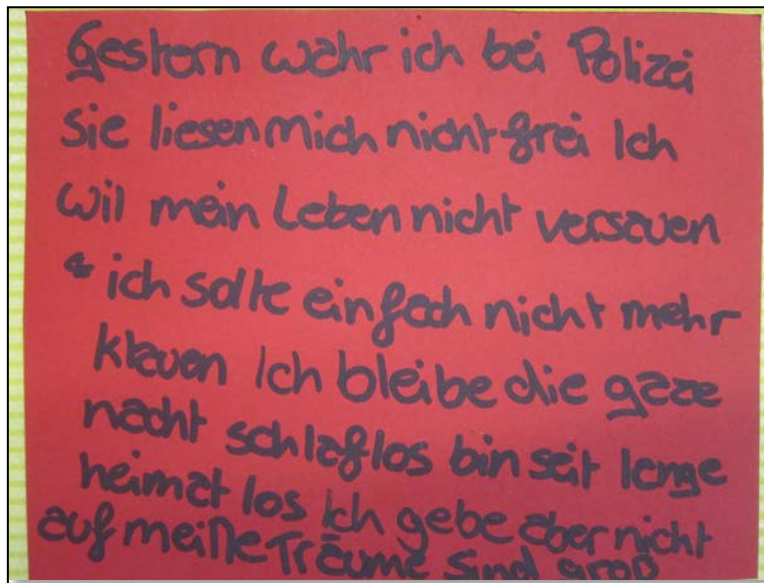 Gestern wahr ich bei Polizei
Sie liesen mich nicht frei Ich
wil mein Leben nicht versauen
* ich solte einfach nicht mehr
klauen Ich bleibe die gaze
nacht schlaflos bin seit lange
heimat los Ich gebe aber nicht
auf meine Träume sind groß